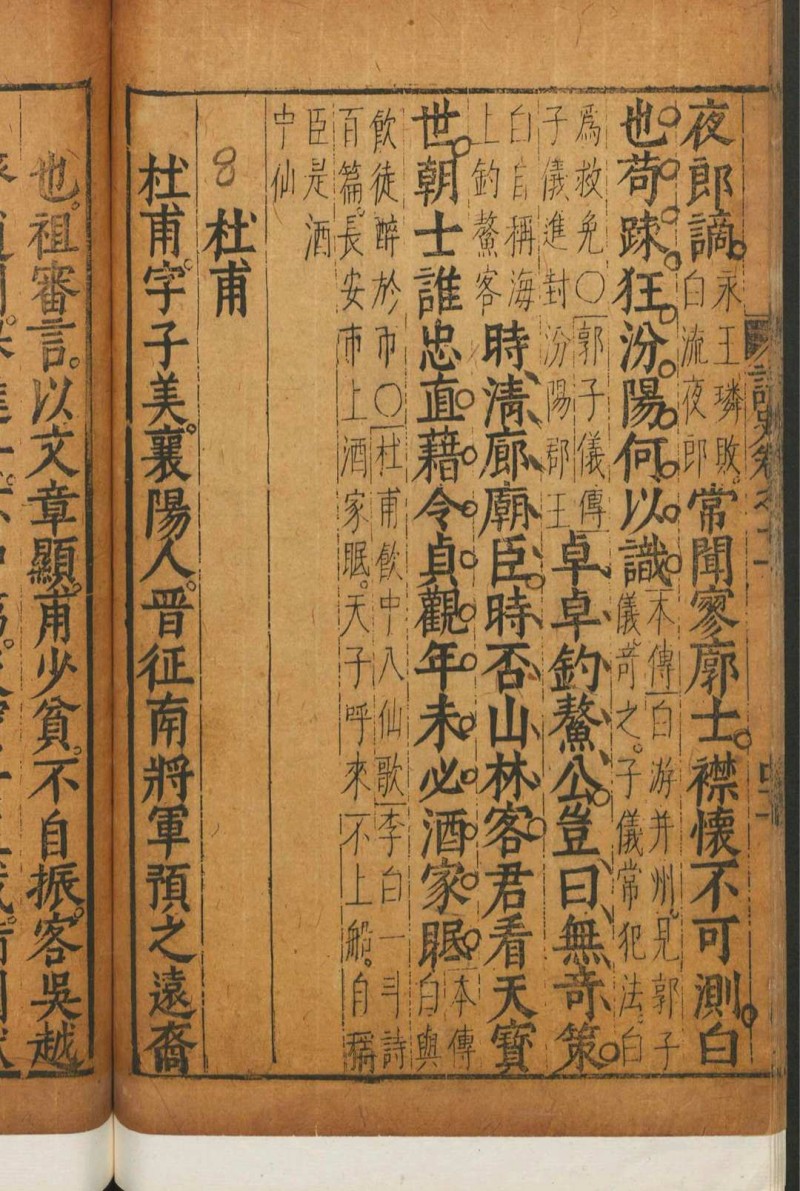 史卷之十一
夜郎謫。永王璘敗。白流夜郎常聞寥廓士。襟懷不可測。白
也苟踈狂。汾陽何以識。本傳白游并州。見郭子儀奇之。子儀常犯法。白
爲救免○郭子儀傳子儀進封汾陽郡王卓卓釣鰲公。豈曰無奇策。
白自稱海上釣鰲客時清廊廟臣。時否山林客。君看天寶
世。朝士誰忠直。藉令貞觀年。未必酒家眠。本傳白與
飲徒醉於市○杜甫飲中八仙歌李白一斗詩百篇。長安市上酒家眠。天子呼來不上船。自稱
臣是酒中仙
8 杜甫
杜甫。字子美。襄陽人。晉征南將軍預之遠裔
也。祖審言。以文章顯。甫少貧。不自振。客吳越